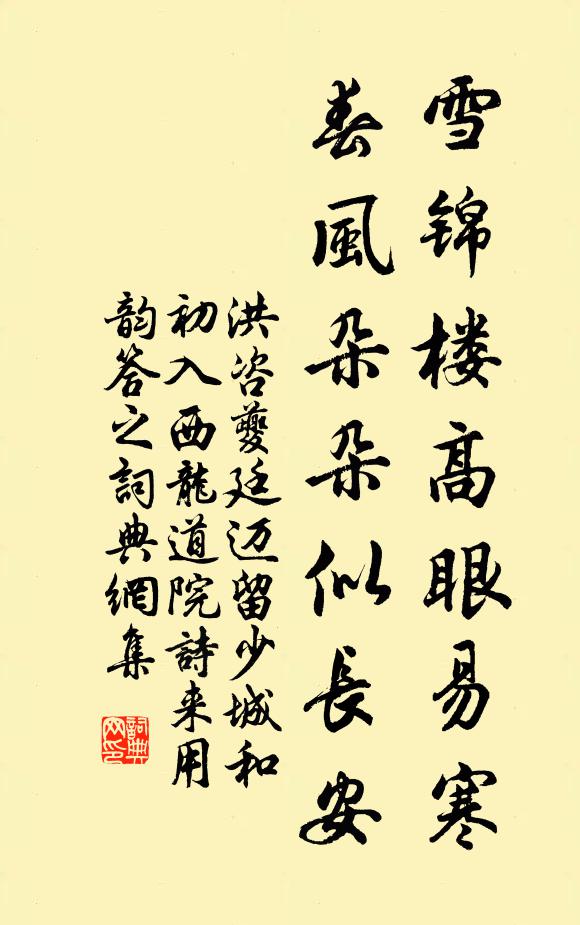 雪锦楼高眼易寒
春風朵朵似長安
洪咨夔廷迈留少城和
初入西龍道院詩来用
韵答之詞典網集
詞典
网印